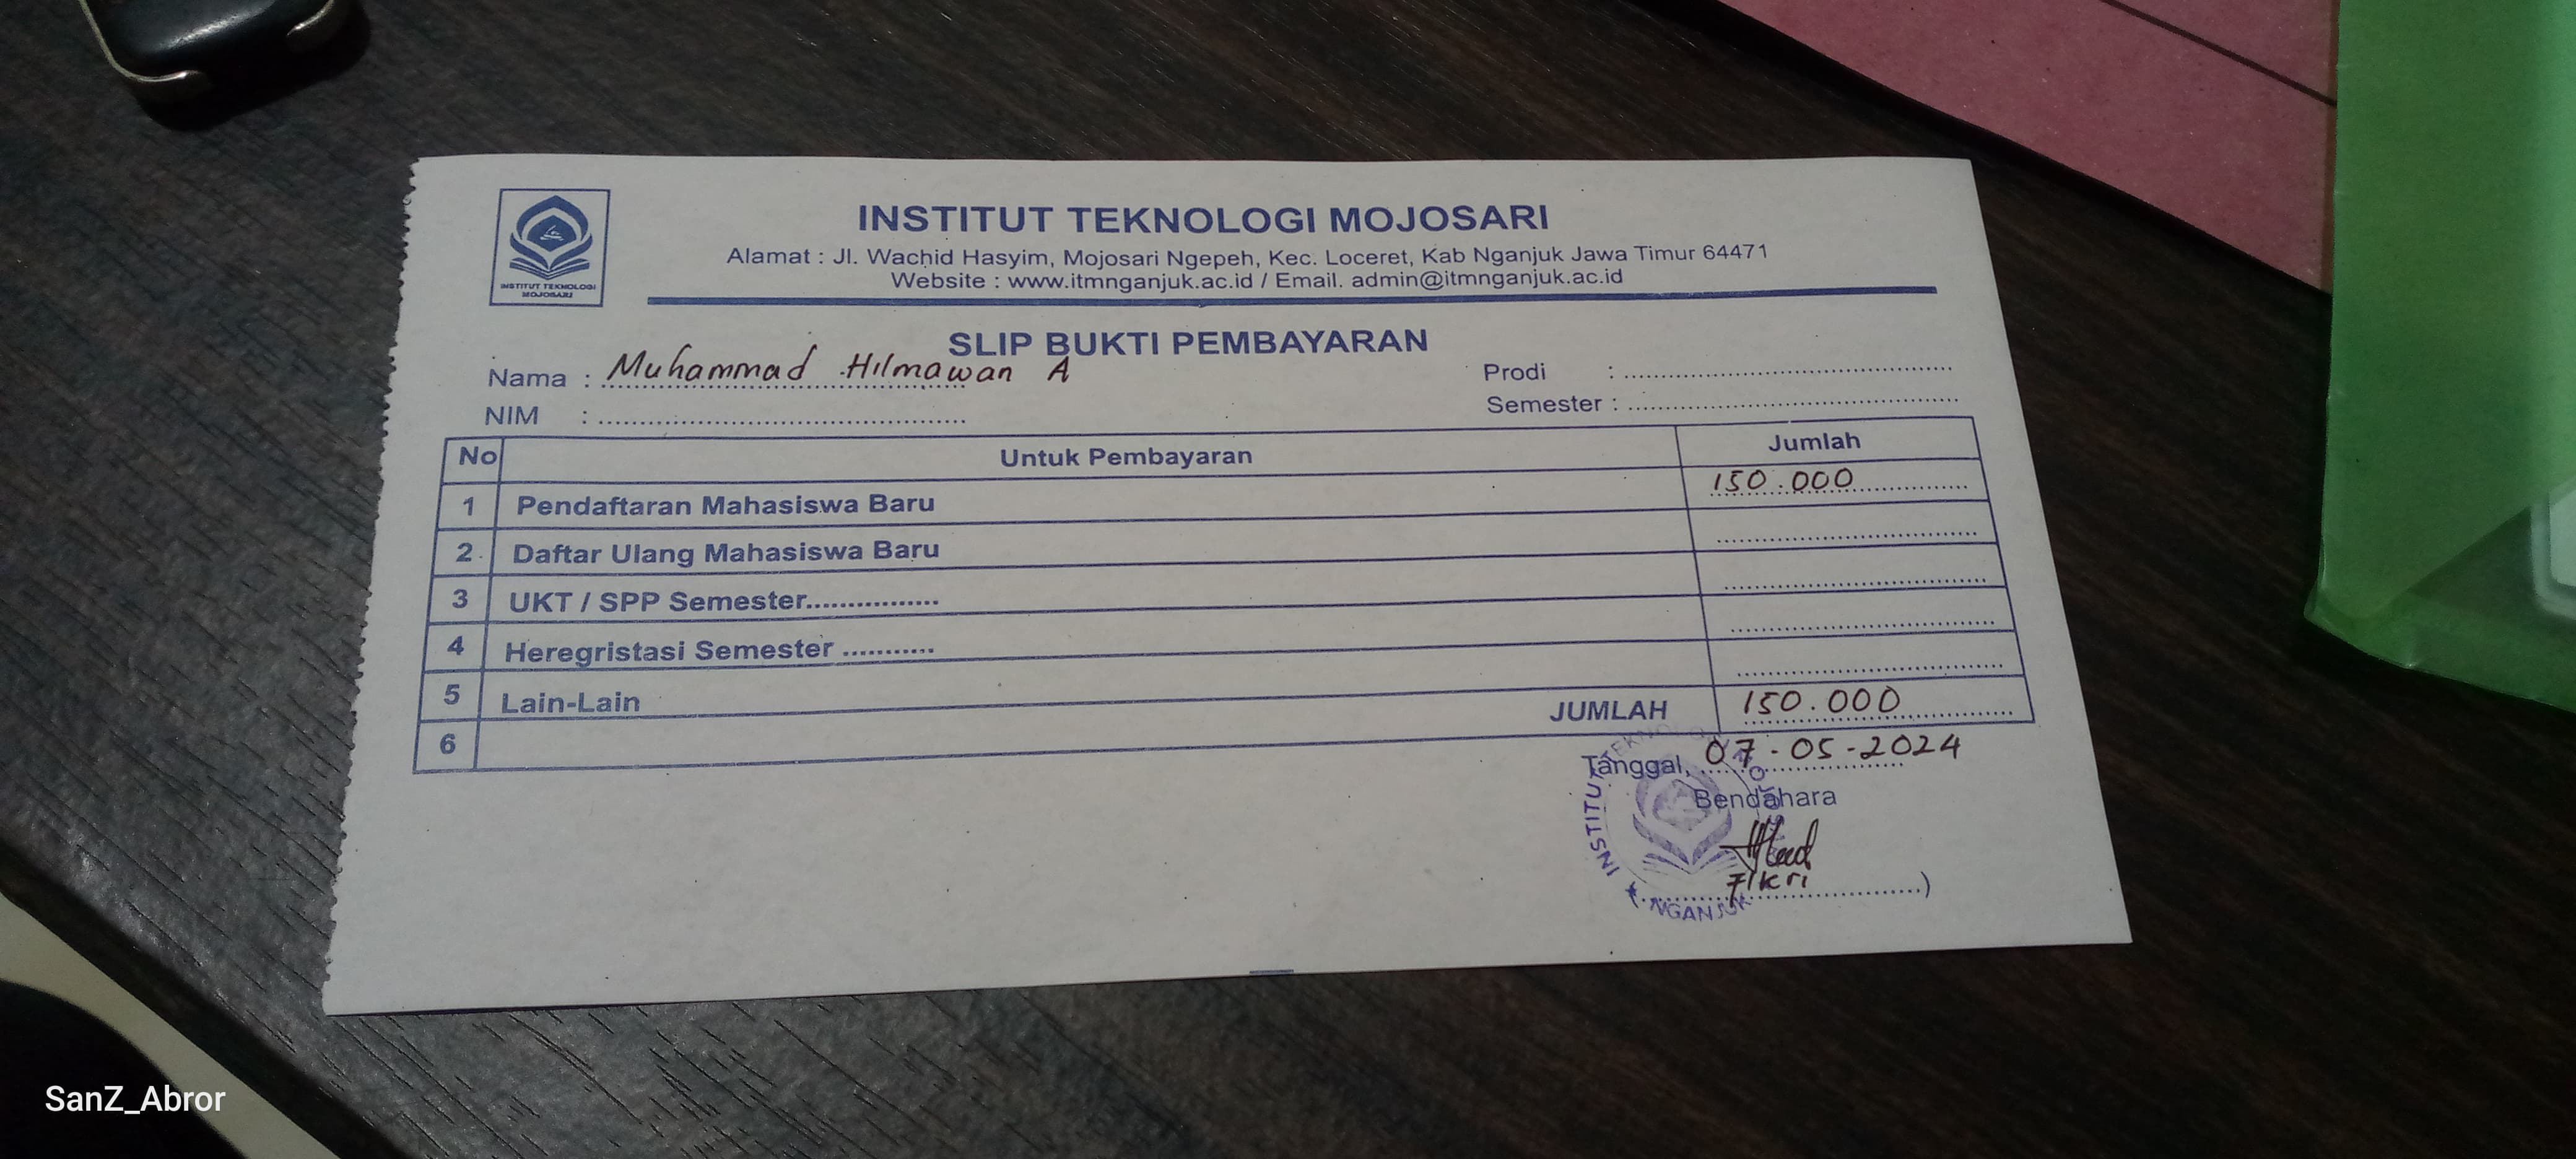 INSTITUT TEKNOLOGI MOJOSARI
Alamat : Jl. Wachid Hasyim, Mojosari Ngepeh, Kec. Loceret, Kab Nganjuk Jawa Timur 64471
Website : www.itmnganjuk.ac.id / Email. admin@itmnganjuk.ac.id
INSTITUT TEKNOLOGI
MOJOSARI
SLIP BUKTI PEMBAYARAN
Nama : Muhammad Hilmawan A
Prodi : ..........
NIM : ..........
Semester : ..........
No Untuk Pembayaran Jumlah
1 Pendaftaran Mahasiswa Baru 150.000
2. Daftar Ulang Mahasiswa Baru
3 UKT / SPP Semester................
4 Heregristasi Semester ...........
5 Lain-Lain
6 JUMLAH 150.000
Tanggal, 07-05-2024
Bendahara
Fikri
INSTITUT TEKNOLOGI MOJOSARI
NGANJUK
SanZ_Abror